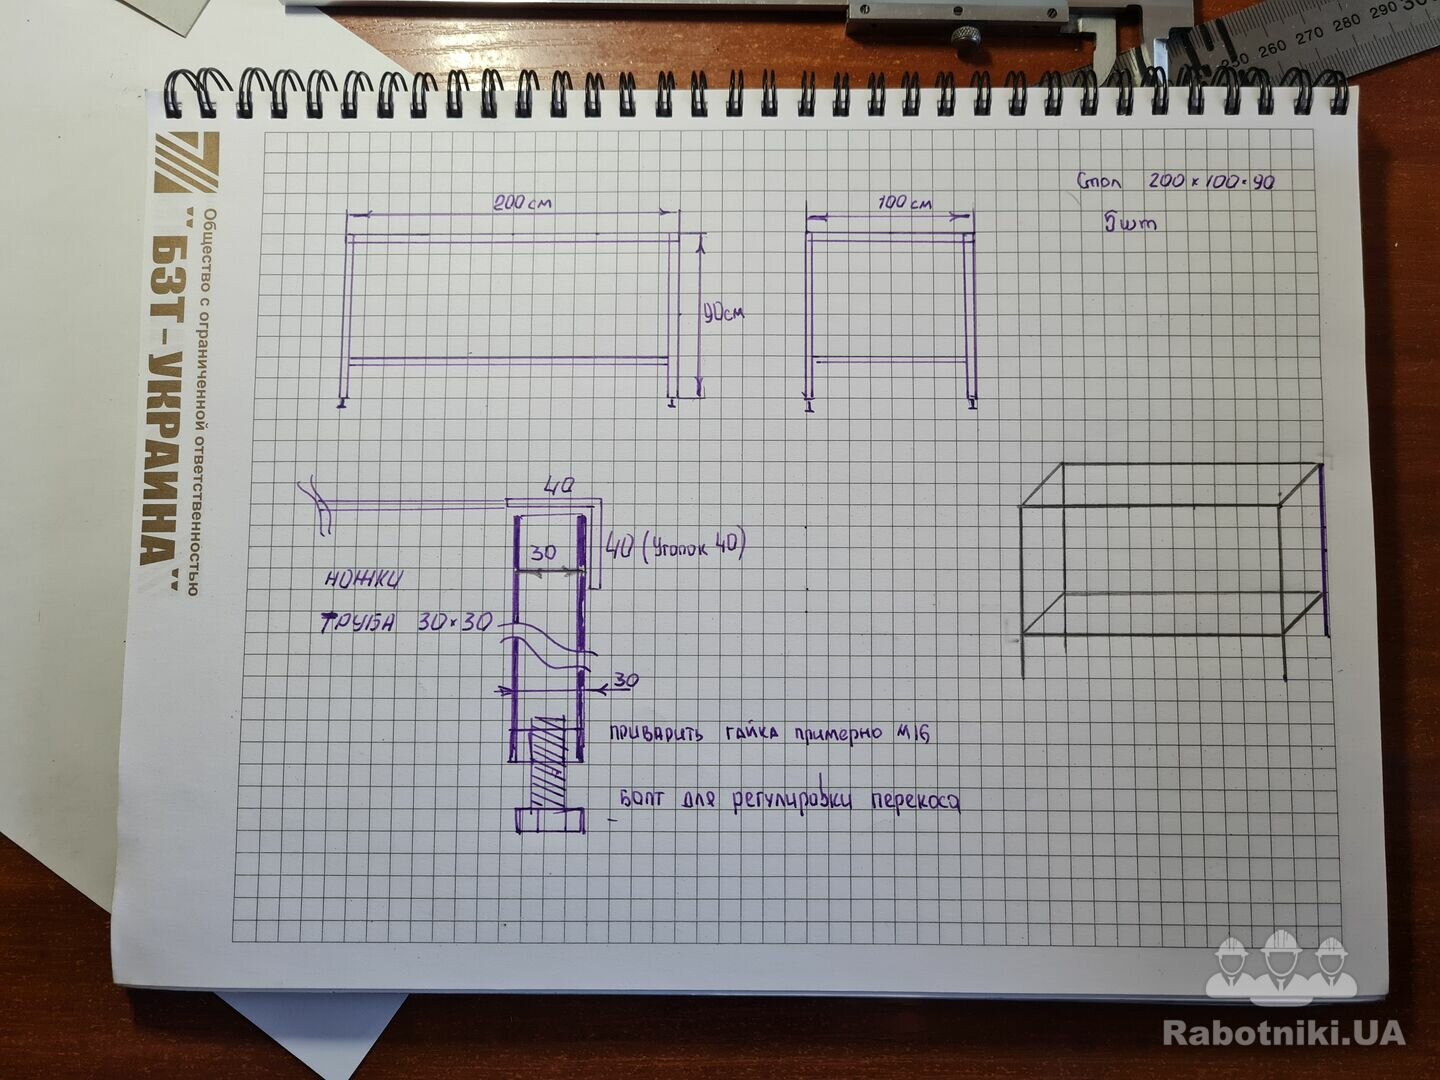 250 260 270 280 290 300
Общество с ограниченной ответственностью
"БЗТ-УКРАИНА"
Стол 200×100×90
5шт
200см
100см
90см
40
40 (Уголок 40)
30
НОЖКИ
ТРУБА 30×30
30
ПРИВАРИТЬ ГАЙКА примерно М16
БОЛТ для регулировки перекоса
Rabotniki.UA